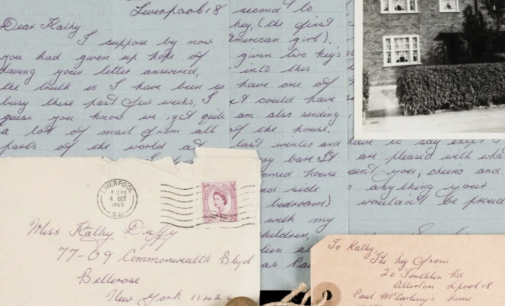 Liverpool 18
Dear Kathy
I suppose by now
you had given up hope of
having your letter answered,
the truth is I have been so
busy these past few weeks. I
guess you know we get quite
a lot of mail from all
parts of the world
second to
key (the first
american girl).
given two key's
into this
have one of
I could have
am also sending
of the house.
last winter and
with my
children,
have to say except I
are pleased with wha
cheers and
anything your
wouldn't be proud
LIVERPOOL
4 OCT
1965
Miss Kathy Duffy
77-09 Commonwealth Blvd
Bellerose
New York 11426
To Kathy
The key from
20 Forthlin Rd
Allerton L.pool 18
Paul McCartney's home